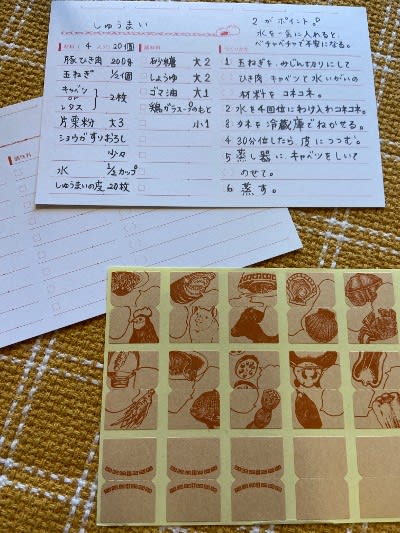 しゅうまい
2がポイント。
水を一気に入れると、
ベチャベチャで不安になる。
材料( 4 人分) 20個
調味料
つくりかた
豚ひき肉 200g
玉ねぎ 1/2個
キャベツ
or
レタス
2枚
片栗粉 大3
ショウガすりおろし
少々
水 1/2カップ
しゅうまいの皮 20枚
砂糖 大2
しょうゆ 大2
ゴマ油 大1
鶏ガラスープのもと
小1
1 玉ねぎを、みじんきりにして
ひき肉 キャベツと水いがいの
材料をコネコネ。
2 水を4回位にわけ入れコネコネ。
3 タネを冷蔵庫でねかせる。
4 30分位したら皮につつむ。
5 蒸し器に、キャベツをしいて
のせて。
6 蒸す。
調味料